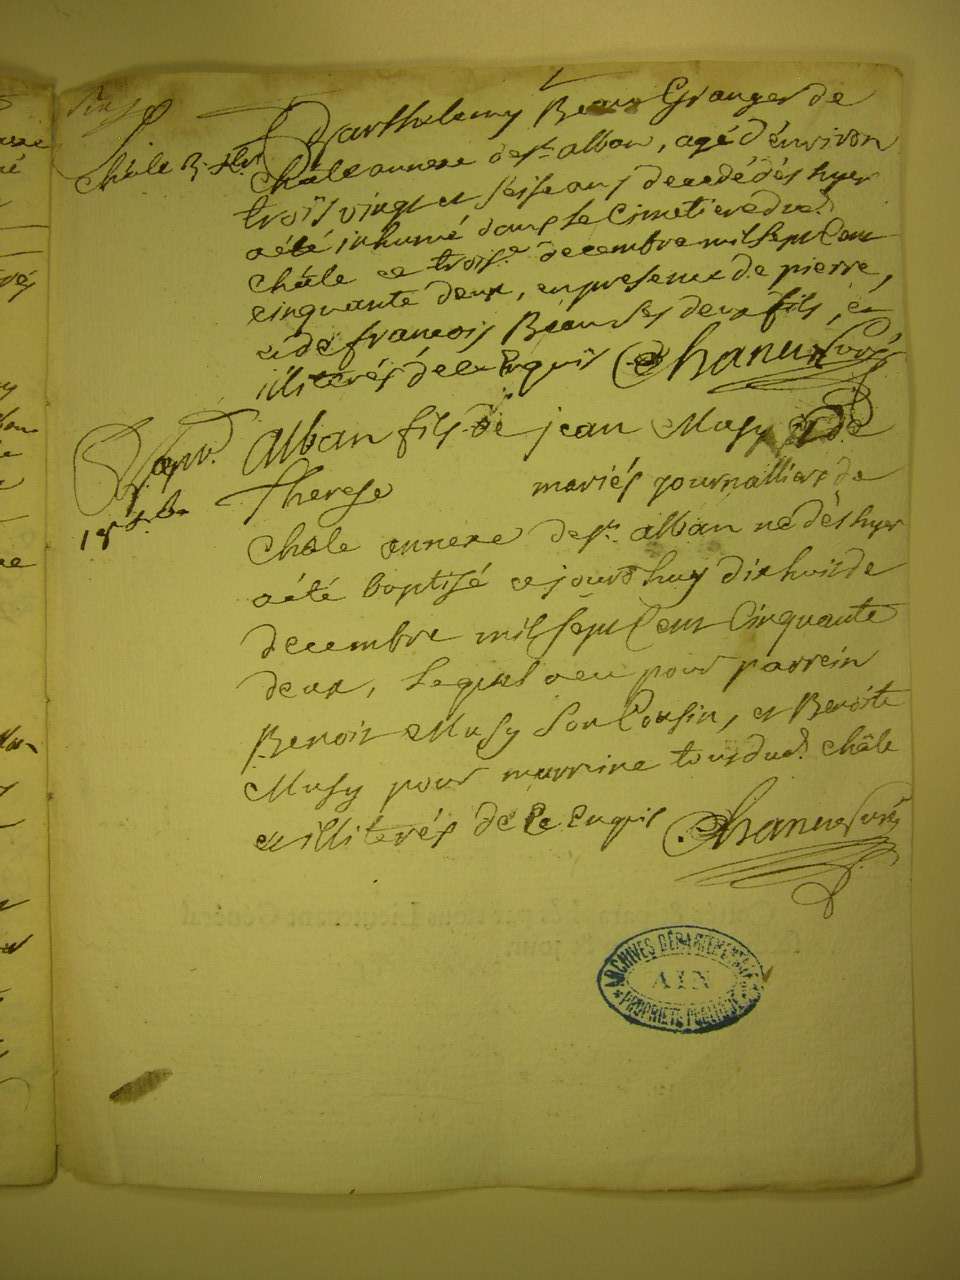 Châle 3. Xbr.
Barthelemy Beau Granger de
Châle annexe de st. alban, agé d'environ
trois vingt et seise ans decedé dés hyer
a été inhumé dans le Cimetiere dud.
châle ce trois.e decembre mil sept Cent
cinquante deux, en presence de pierre,
et de francois Beau ses deux fils, et
illiterés de ce Enquis Chanu Curé
Bapt.
18 Xbr.
Alban fils de jean Musy et de
Therese mariés journalliers de
Châle annexe de st. alban né dés hyer
a été baptisé ce jourdhuy dix huit de
decembre mil sept Cent Cinquante
deux, Lequel a eu pour parrein
Benoit Musy son Cousin, et Benoite
Musy pour marrine tous dud. châle
et illiterés de Ce Enquis Chanu Curé
ARCHIVES DÉPARTEMENTALES
AIN
PROPRIÉTÉ PUBLIQUE